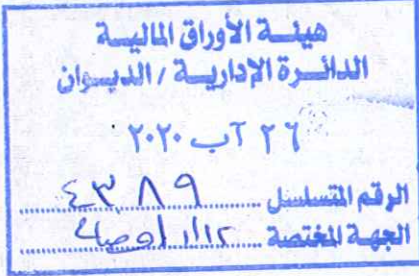 هيئة الأوراق المالية
الدائرة الإدارية / الديوان
٢٦ آب ٢٠٢٠
الرقم المتسلسل ٤٣٨٩
الجهة المختصة